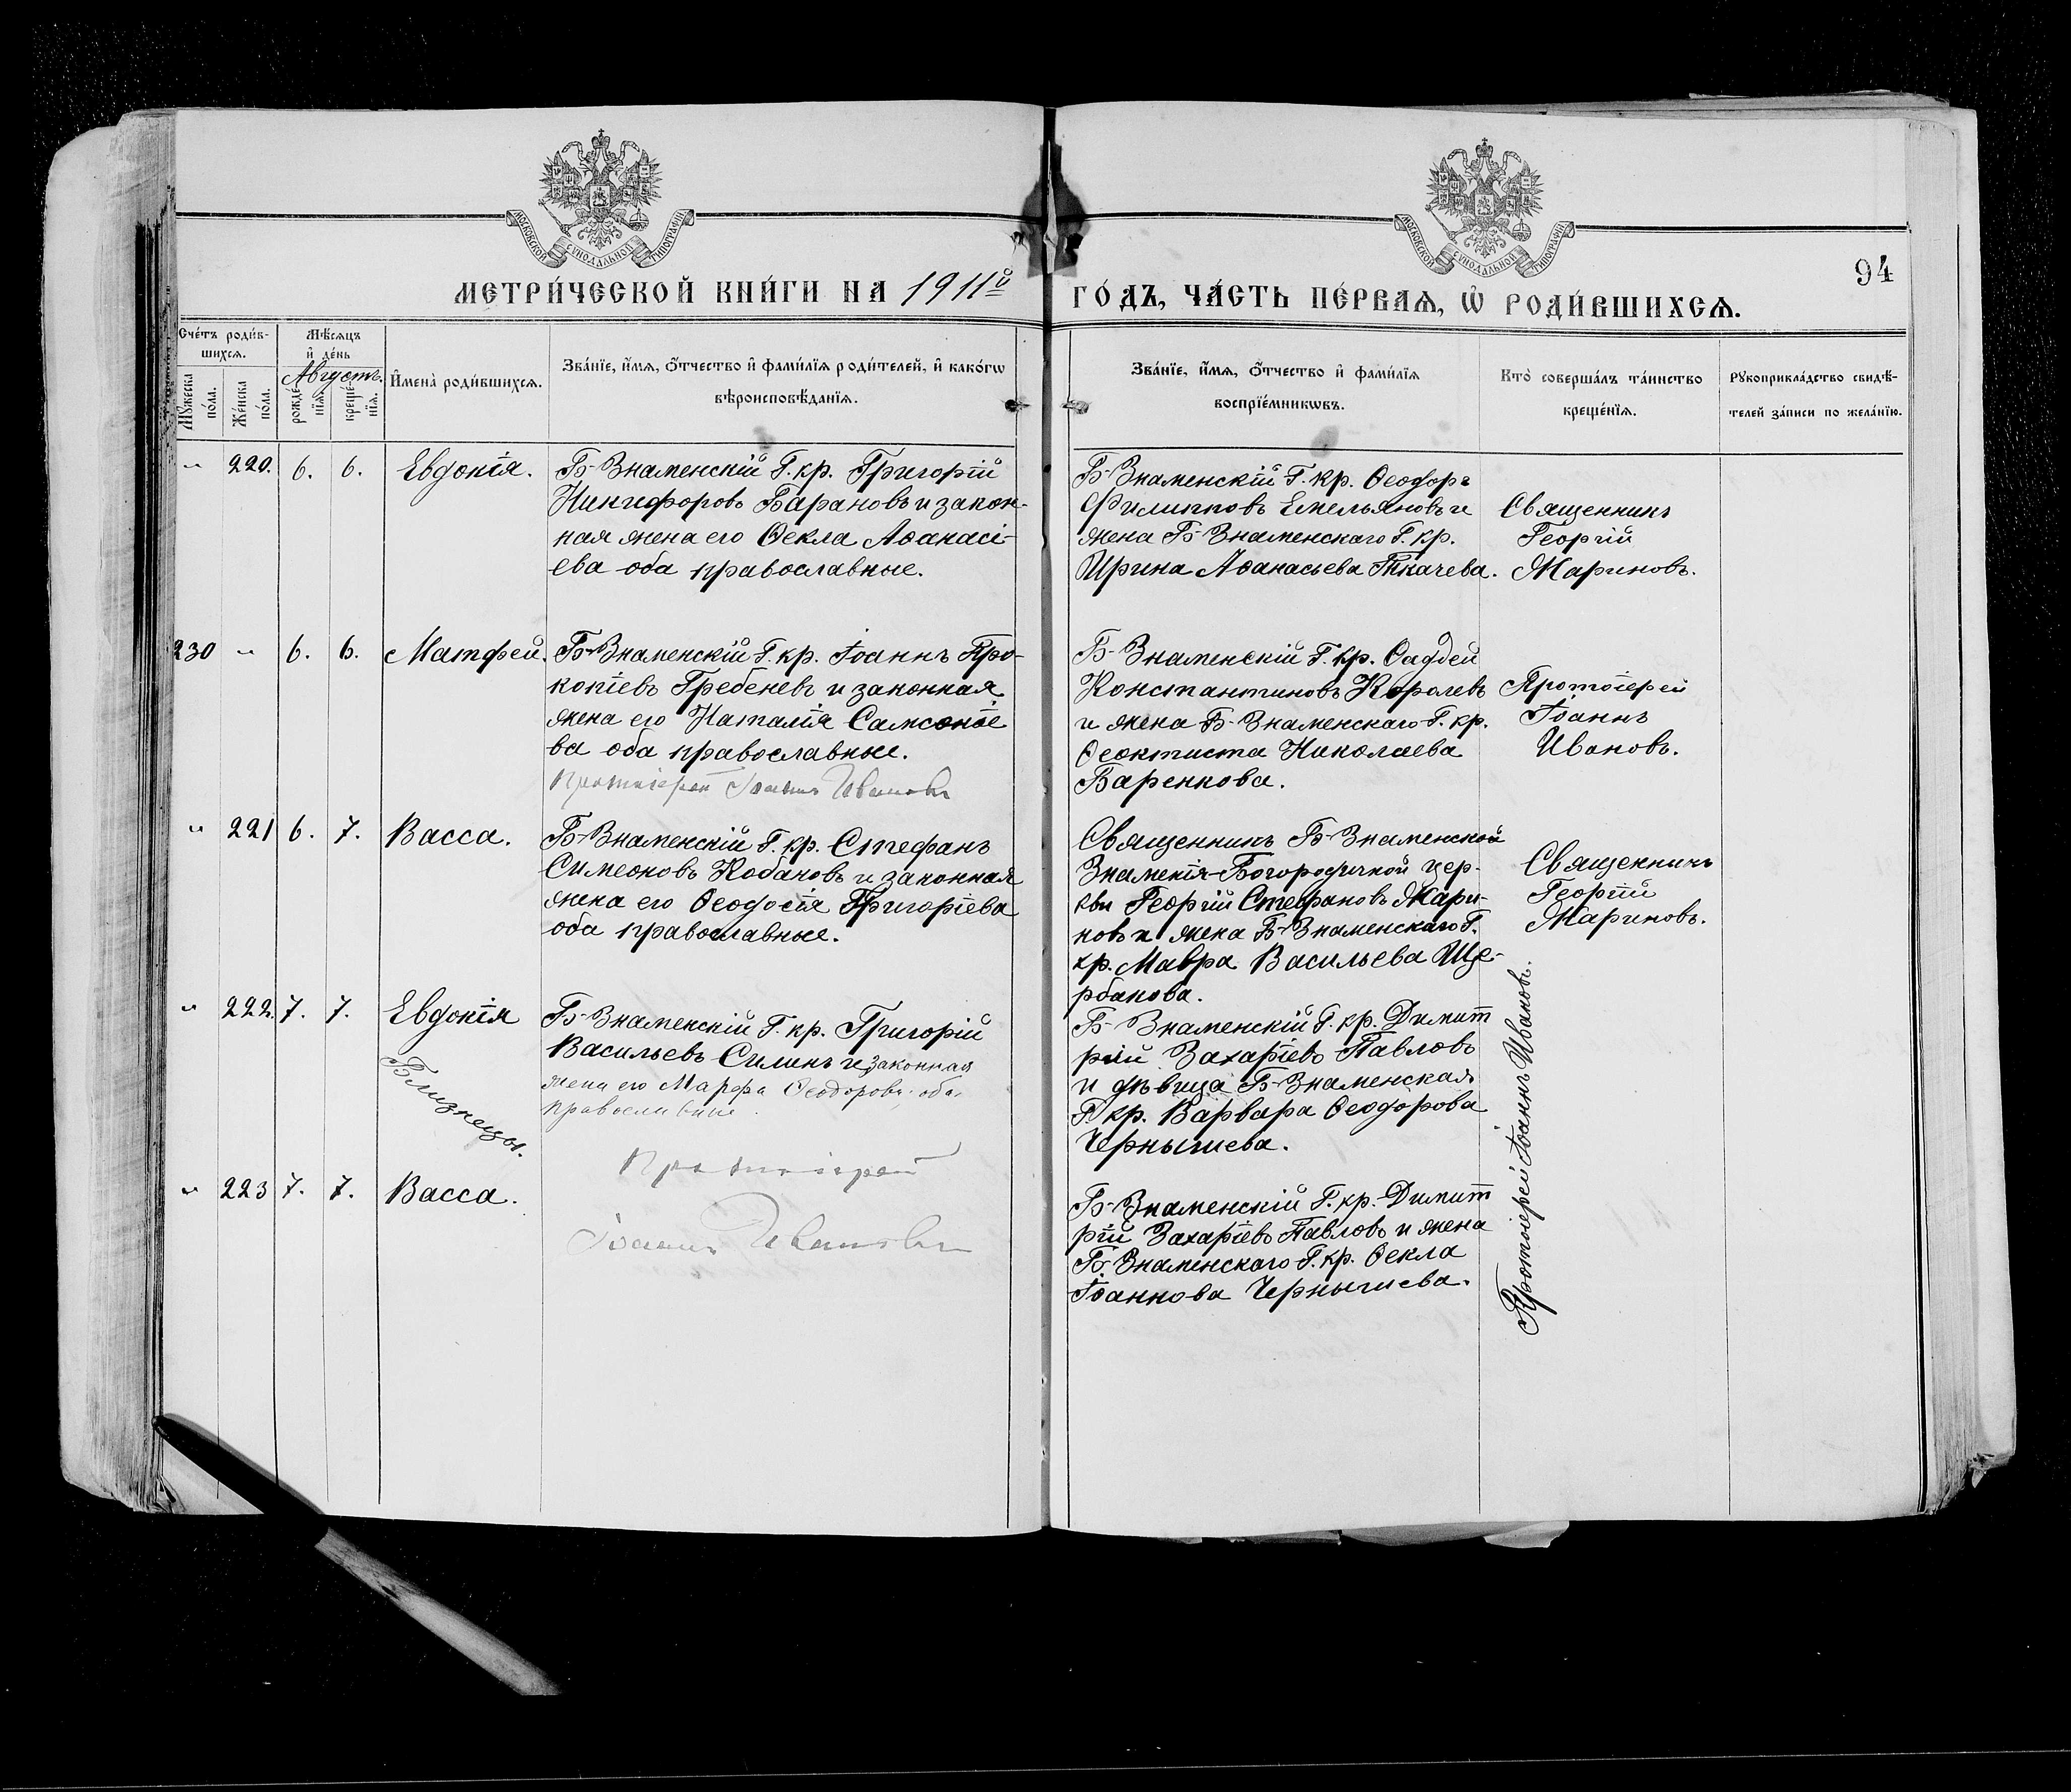 МОСКОВСКОЙ СУНОДАЛЬНОЙ ТИПОГРАФІИ
МОСКОВСКОЙ СУНОДАЛЬНОЙ ТИПОГРАФІИ
94
МЕТРИ́ЧЕСКОЙ КНИ́ГИ НА 1911й ГО́ДЪ, ЧА́СТЬ ПЕ́РВАѦ, Ѡ҆ РОДИ́ВШИХСѦ.
Сче́тъ роди́в-
шихсѧ.
Мꙋ́жеска
по́ла.
Же́нска
по́ла.
Мѣ́сѧцъ
и҆ де́нь
Августъ.
рожде́-
нїѧ.
креще́-
нїѧ.
И҆мена̀ роди́вшихсѧ.
Зва́нїе, и҆́мѧ, ѻ҆́тчество и҆ фами́лїѧ роди́телей, и҆ како́гѡ
вѣроисповѣ́данїѧ.
Зва́нїе, и҆́мѧ, ѻ҆́тчество и҆ фами́лїѧ
воспрїе́мникѡвъ.
Кто̀ соверша́лъ та́инство
креще́нїѧ.
Рꙋкоприкла́дство свидѣ́-
телей за́писи по жела́нїю.
" 220. 6. 6. Евдокія.
Б-Знаменскій Г. кр. Григорій
Никифоровъ Барановъ и закон-
ная жена его Ѳекла Аѳанасі-
ева оба православные.
Б-Знаменскій Г. кр. Ѳеодоръ
Филипповъ Емельяновъ и
жена Б-Знаменскаго Г. кр.
Ирина Аѳанасьева Ткачева.
Священникъ
Георгій
Мариновъ.
230 " 6. 6. Матфей.
Б-Знаменскій Г. кр. Іоаннъ Про-
копіевъ Гребеневъ и законная
жена его Наталія Самсоніе
ва оба православные.
Протоіерей Іоаннъ Ивановъ
Б-Знаменскій Г. кр. Ѳаддей
Константиновъ Королевъ
и жена Б-Знаменскаго Г. кр.
Ѳеоктиста Николаева
Баренкова.
Протоіерей
Іоаннъ
Ивановъ.
" 221 6. 7. Васса.
Б-Знаменскій Г. кр. Стефанъ
Симеоновъ Кобановъ и законная
жена его Ѳеодосія Григоріева
оба православные.
Священникъ Б-Знаменской
Знаменія-Богородичной цер-
кви Георгій Стефановъ Мари-
новъ и жена Б-Знаменскаго Г.
кр. Мавра Васильева Ще-
рбакова.
Священникъ
Георгій
Мариновъ.
" 222. 7. 7. Евдокія
Близнецы.
Б-Знаменскій Г. кр. Григорій
Васильевъ Силинъ и законная
жена его Марѳа Ѳеодорова оба
православные
Протоіерей
Іоаннъ Ивановъ
Б-Знаменскій Г. кр. Димит
рій Захаріевъ Павловъ
и дѣвица Б-Знаменская
Г кр. Варвара Ѳеодорова
Чернышева.
Протоіерей Іоаннъ Ивановъ.
" 223 7. 7. Васса.
Б-Знаменскій Г. кр. Димит
рій Захаріевъ Павловъ и жена
Б-Знаменскаго Г. кр. Ѳекла
Іоаннова Чернышева.